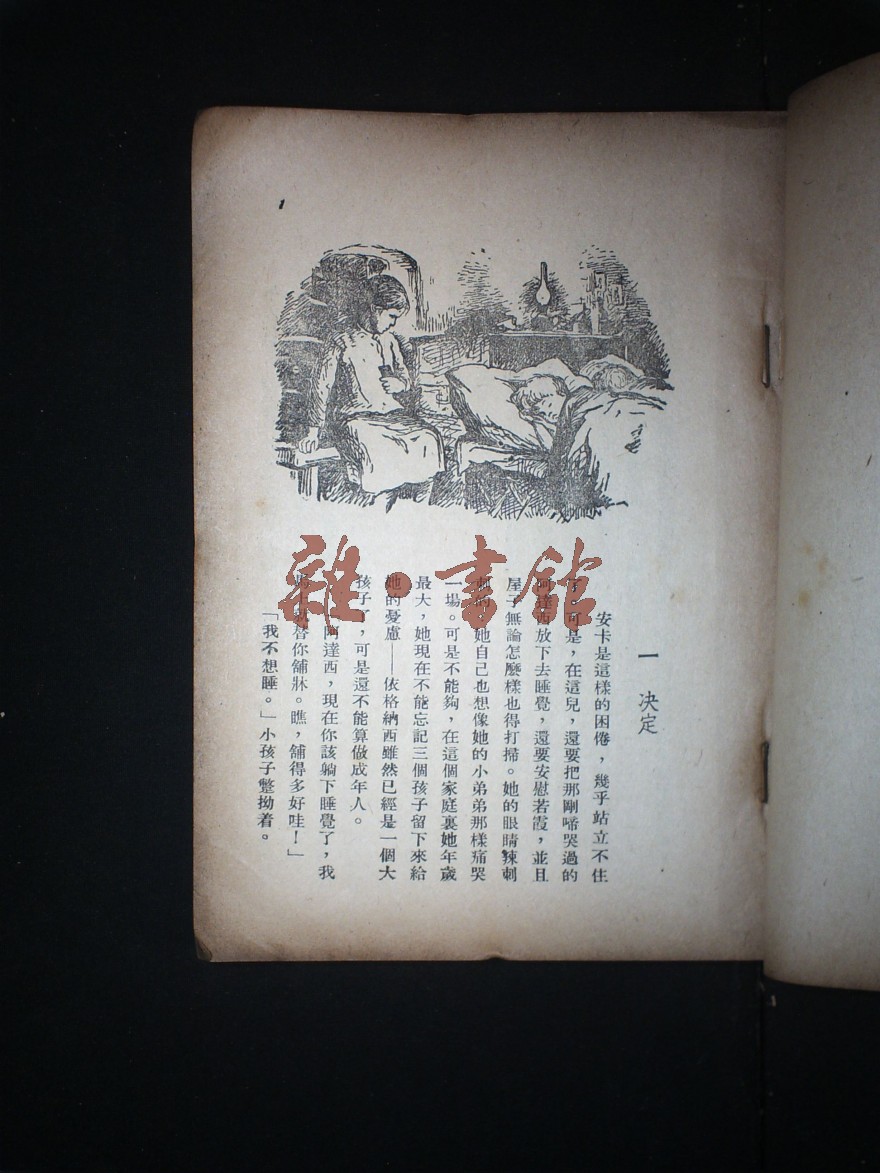 一 決定
安卡是這樣的困倦，幾乎站立不住
了。可是，在這兒，還要把那剛啼哭過的
阿達西放下去睡覺，還要安慰若霞，並且
屋子無論怎麼樣也得打掃。她的眼睛辣刺
刺的，她自己也想像她的小弟弟那樣痛哭
一場。可是不能夠，在這個家庭裏她年歲
最大，她現在不能忘記三個孩子留下來給
她的憂慮——依格納西雖然已經是一個大
孩子了，可是還不能算做成年人。
「阿達西，現在你該躺下睡覺了，我
馬上就替你舖牀。瞧，舖得多好哇！」
「我不想睡。」小孩子彆拗着。
1
雜·書館